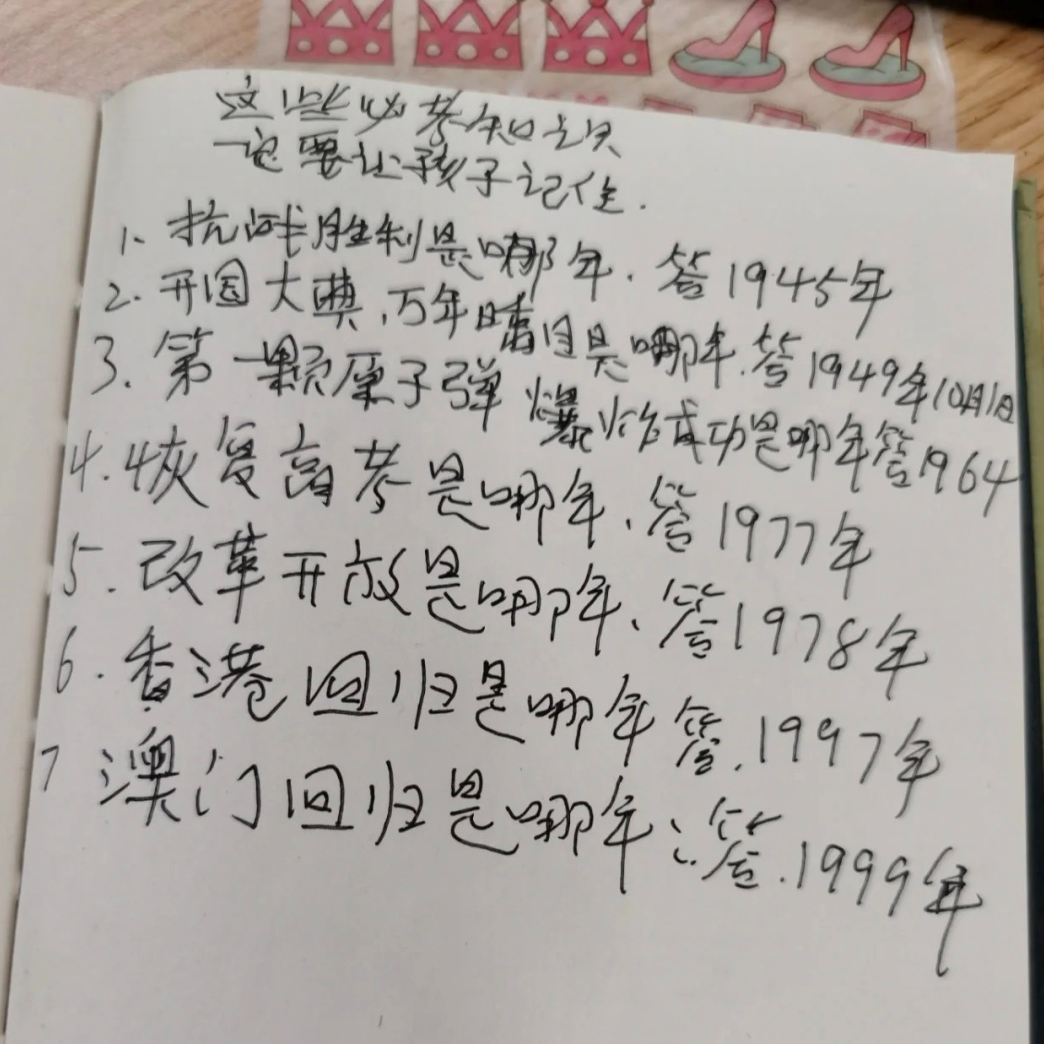 这些必考知识
一定要让孩子记住.
1、抗战胜利是哪年.答1945年
2.开国大典,万年晴目是哪年.答1949年10月1日
3.第一颗原子弹爆炸成功是哪年答1964
4.恢复高考是哪年、答1977年
5.改革开放是哪年、答1978年
6.香港回归是哪年答.1997年
7澳门回归是哪年:答.1999年